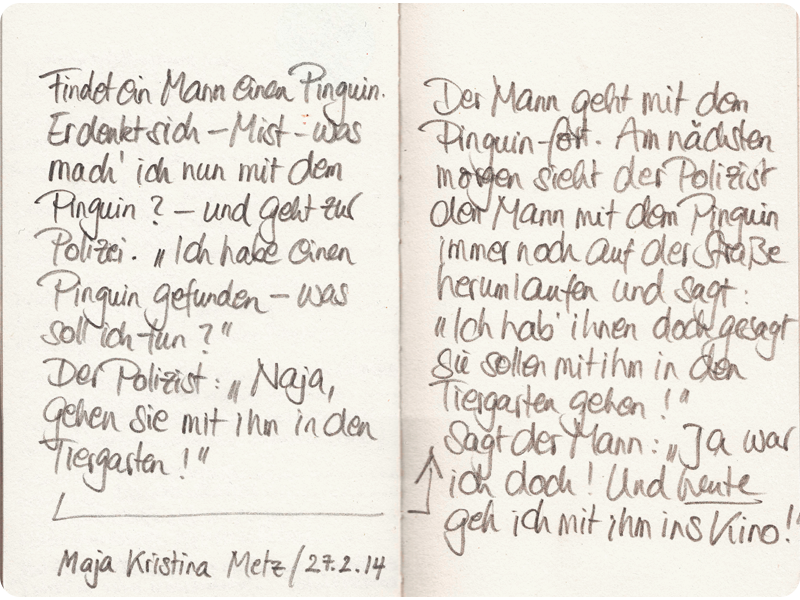 Findet ein Mann einen Pinguin.
Er denkt sich – Mist – was
mach' ich nun mit dem
Pinguin? – und geht zur
Polizei. „Ich habe einen
Pinguin gefunden – was
soll ich tun?"
Der Polizist: „Naja,
gehen Sie mit ihm in den
Tiergarten!"
Maja Kristina Metz / 27.2.14
Der Mann geht mit dem
Pinguin fort. Am nächsten
morgen sieht der Polizist
den Mann mit dem Pinguin
immer noch auf der Straße
herumlaufen und sagt:
„Ich hab' ihnen doch gesagt
sie sollen mit ihm in den
Tiergarten gehen!"
Sagt der Mann: „Ja war
ich doch! Und heute
geh ich mit ihm ins Kino!"